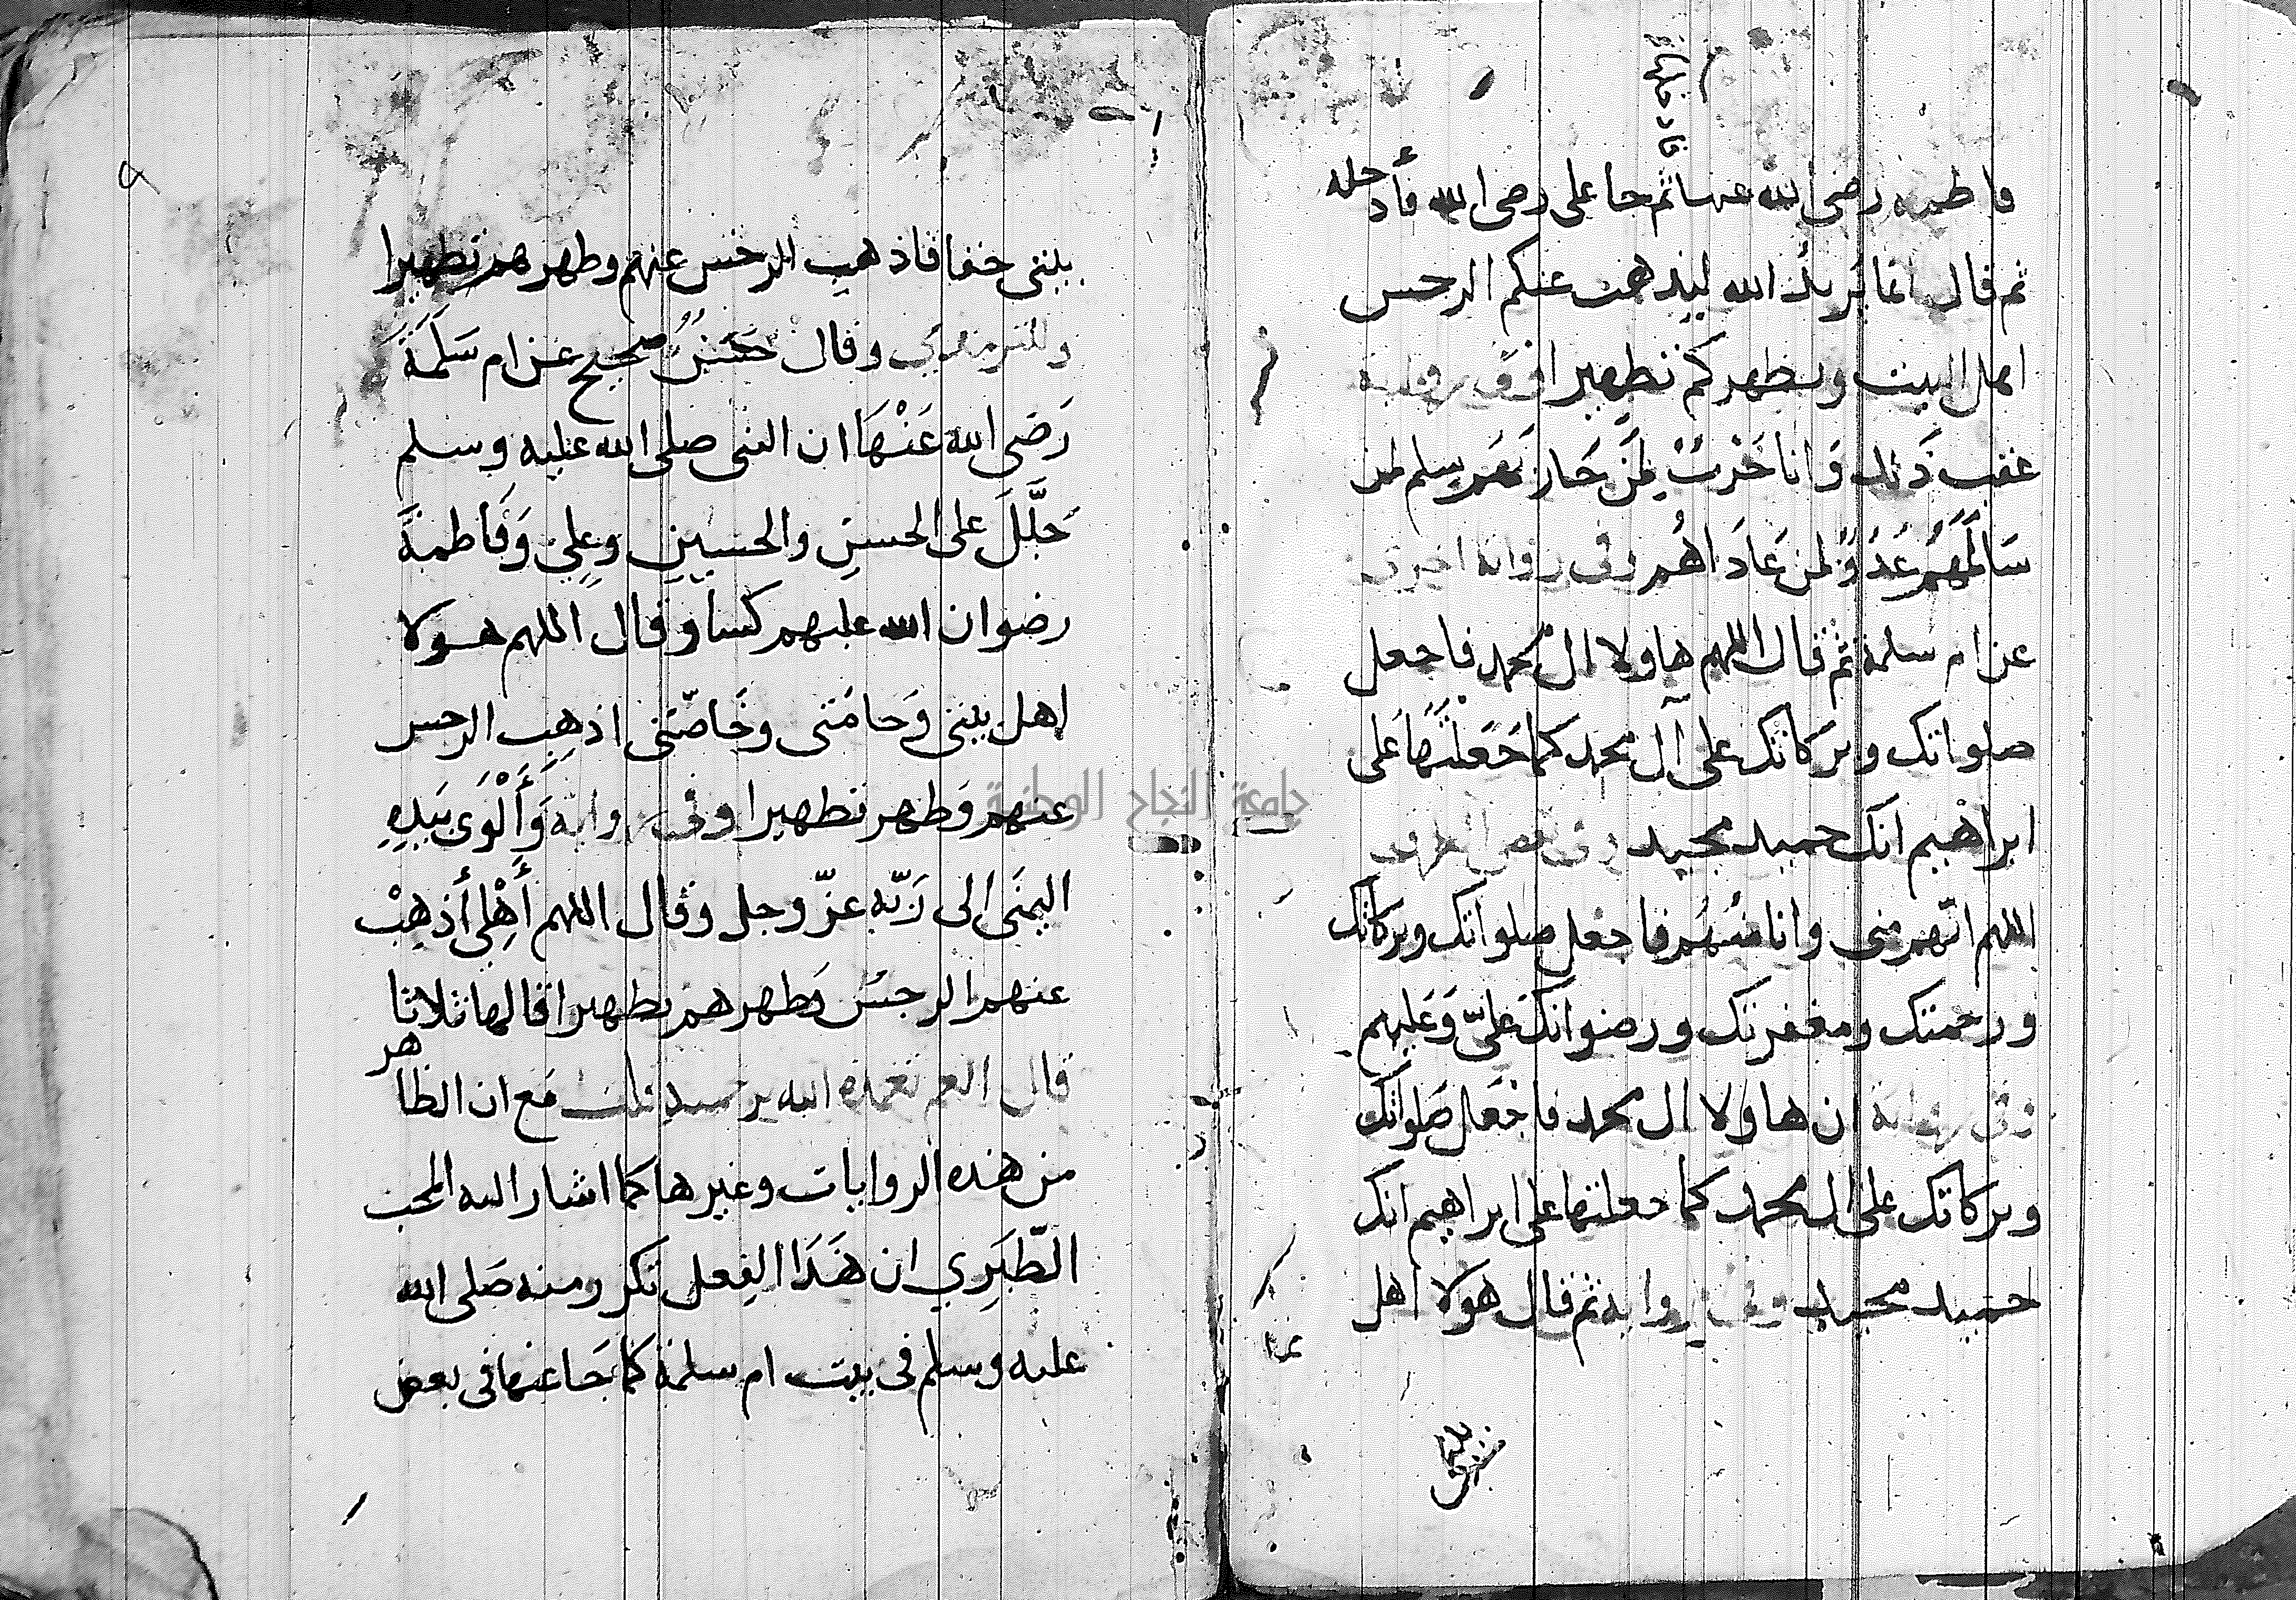 فاطمه رضى الله عنها ثم جا على رضى الله فأدخله
فادخلها
ثم قال انما يُريدُ الله ليذهبَ عنكم الرجس
اهل البيت ويطهركم تطهيرا وفى رواية
عقب ذَلك وَانا حَرْبٌ لِمَن حَاربَهُم سلم لمن
سَالمَهُم عَدُوٌّ لمن عَادَاهُم وفى رواية اخرى
عن ام سلمة ثم قال اللهم هاولا ال محمد فاجعل
صلواتك وبركاتك على آل محمد كما جَعَلتَهَا عَلى
ابراهيم انك حميد مجيد وفى بعض الطرق
اللهم انّهم منى وانا منهُم فاجعل صلواتك وبركاتك
ورحمتك ومغفرتك ورضوانك علىّ وَعَليهم
وفى رواية ان هاولا ال محمد فاجْعَل صَلواتك
وبركاتك على ال محمد كما جعلتها على ابراهيم انك
حميد مجيد وفى رواية ثم قال هولا اهل
٩
بيتى حقا فاذهب الرجس عنهم وطهرهم تطهيرا
وللترمذي وقال حَسَنٌ صحيح عن ام سَلَمَةَ
رَضى الله عَنْهَا ان النبى صلى الله عليه وسلم
جَلَّلَ على الحسنِ والحسينِ وعلِيٍ وَفَاطمةَ
رضوان الله عليهم كساً وقال اللهم هولا
اهل بيتى وَحامّتى وخَاصّتى اذهِب الرجس
عنهم وَطهر تطهيرا وفى رواية وَأَلْوَى بيَدِهِ
اليمنَى الى رَبّه عزّ وجل وقال اللهم أَهْلِى أَذهِبْ
عنهم الرجسَ وَطهرهم تطهيرا قالها ثلاثا
قال العم تغمده الله برحمته مَع ان الظاهر
من هذه الروايات وغيرها كما اشار اليه المحب
الطّبَرِي ان هَذَا الفِعل تكرر منه صَلى الله
عليه وسلم فى بيت ام سلمة كما جَا عنها فى بعض
جامعة النجاح الوطنية